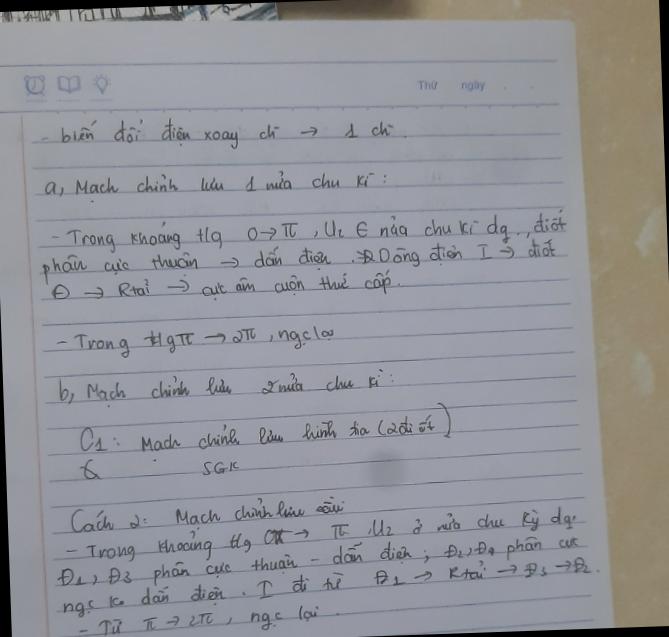 Thứ ngày . .
- biến đổi điện xoay ch → 1 ch.
a, Mạch chỉnh lưu 1 nửa chu kì :
- Trong khoảng tlg 0 → π , U2 ∈ nửa chu kì dg , điốt
phân cực thuận → dẫn điện . Dòng điện I → điốt
Đ → Rtải → cực âm cuộn thứ cấp.
- Trong tlg π → 2π , ngc lại
b, Mạch chỉnh lưu 2 nửa chu kì :
C1 : Mạch chỉnh lưu hình tia (2 điốt)
SGK
Cách 2: Mạch chỉnh lưu cầu
- Trong khoảng tlg → π U2 ở nửa chu kỳ dg.
Đ1, Đ3 phân cực thuận - dẫn điện ; Đ2, Đ4 phân cực
ngc ko dẫn điện . I đi từ Đ1 → Rtải → Đ3 → Đ2.
- Từ π → 2π , ngc lại .